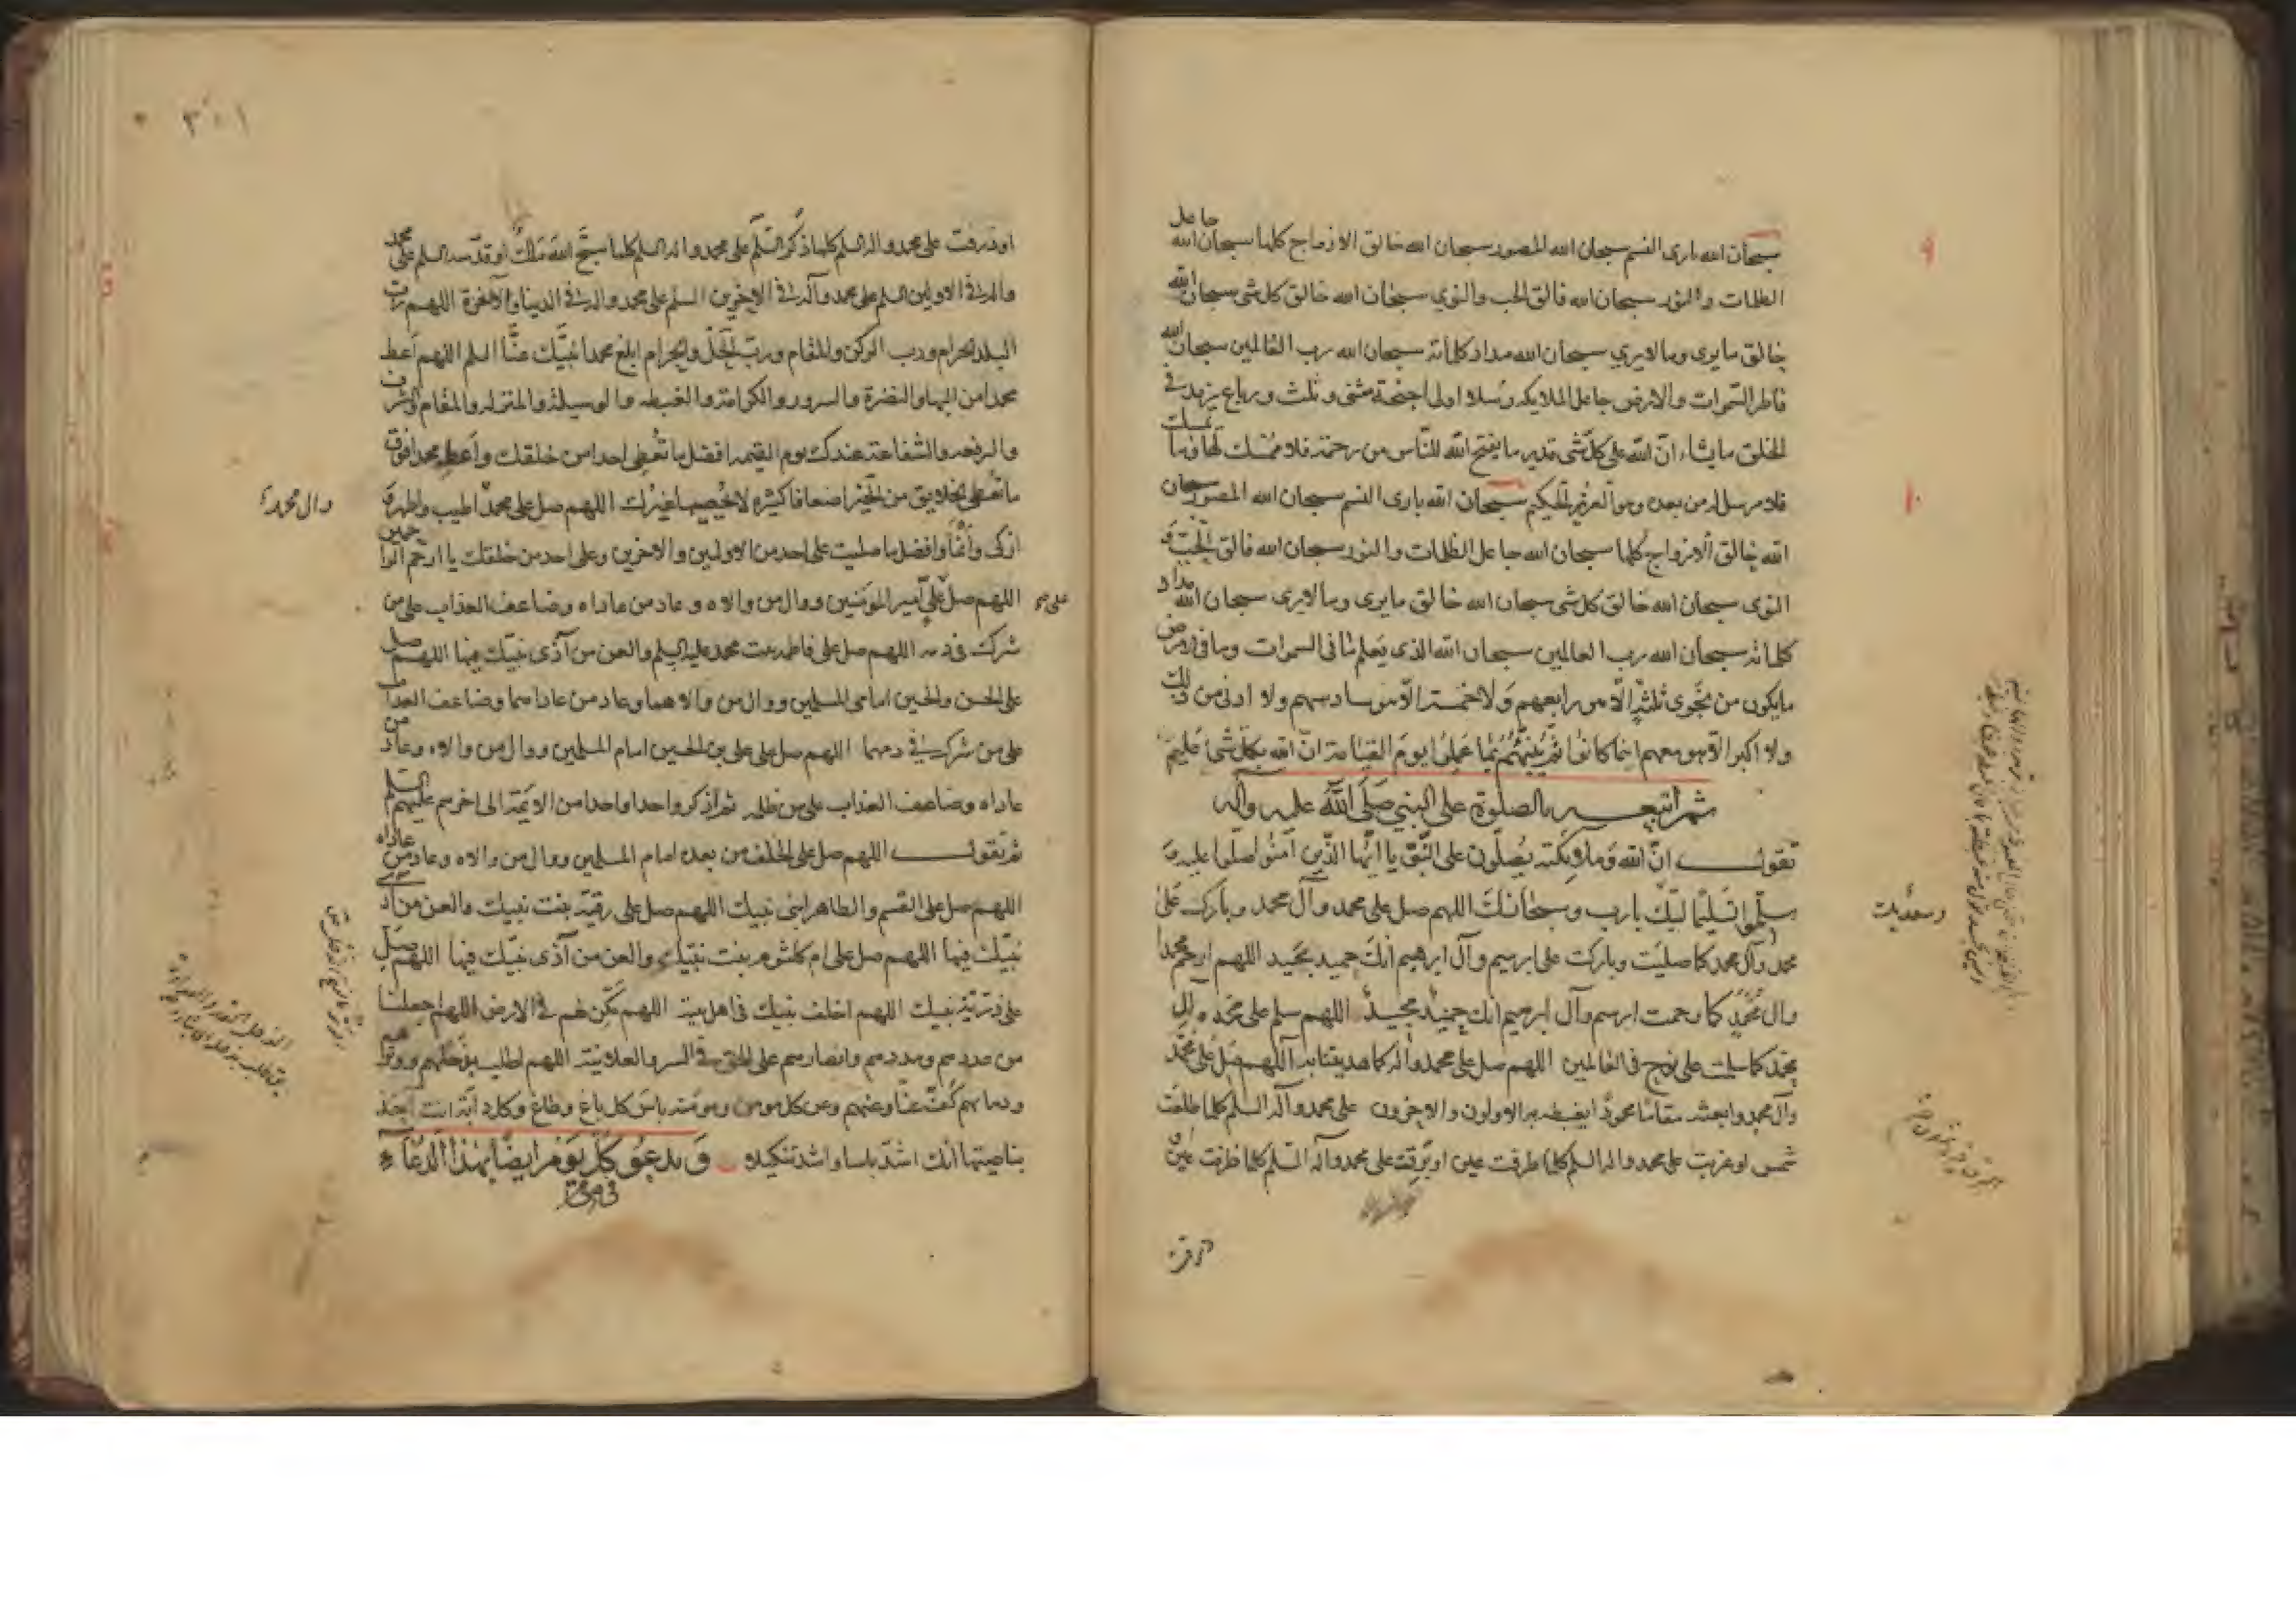 سبحان الله بارئ النسم سبحان الله المصور سبحان الله خالق الازواج كلها سبحان الله جاعل
الظلمات والنور سبحان الله فالق الحب والنوى سبحان الله خالق كل شئ سبحان الله
خالق ما يرى وما لا يرى سبحان الله مداد كلماته سبحان الله رب العالمين سبحان الله
فاطر السموات والارض جاعل الملايكه رسلا اولى اجنحة مثنى وثلث ورباع يزيد فى
الخلق ما يشاء ان الله على كل شئ قدير ما يفتح الله للناس من رحمة فلا ممسك لها وما يمسك
فلا مرسل له من بعده وهو العزيز الحكيم سبحان الله بارى النسم سبحان الله المصور سبحان
الله خالق الازواج كلها سبحان الله جاعل الظلمات والنور سبحان الله فالق الحب و
النوى سبحان الله خالق كل شى سبحان الله خالق ما يرى وما لا يرى سبحان الله مداد
كلماته سبحان الله رب العالمين سبحان الله الذى يعلم ما فى السموات وما فى الارض
ما يكون من نجوى ثلثة الا هو رابعهم ولا خمسة الا هو سادسهم ولا ادنى من ذلك
ولا اكبر الا هو معهم اينما كانوا ثم ينبئهم بما عملوا يوم القيامة ان الله بكل شئ عليم
ثم اتبعه بالصلوة على النبي صلى الله عليه وآله
تقول ان الله وملايكته يصلون على النبى يا ايها الذين آمنوا صلوا عليه و
سلموا تسليما لبيك يا رب وسبحانك اللهم صل على محمد وآل محمد وبارك على
وسعديك
محمد وآل محمد كما صليت وباركت على ابرهيم وآل ابرهيم انك حميد مجيد اللهم ارحم محمدا
وال محمد كما رحمت ابرهيم وآل ابرهيم انك حميد مجيد اللهم سلم على محمد وال
محمد كما سلمت على نوح فى العالمين اللهم صل على محمد وآله كما هديتنا به اللهم صل على محمد
وآل محمد وابعثه مقاما محمودا يغبطه به الاولون والاخرون على محمد وآله السلم كلما طلعت
شمس او غربت على محمد واله السلم كلما طرفت عين او برقت على محمد وآله السلم كلما طرفت عين
او ذرفت على محمد واله السلم كلما ذكر السلم على محمد واله السلم كلما سبح الله ملك او قدسه السلم على محمد
واله فى الاولين السلم على محمد وآله فى الاخرين السلم على محمد واله فى الدنيا والآخرة اللهم رب
البلد الحرام ورب الركن والمقام ورب الحل والحرام ابلغ محمدا نبيك عنا السلم اللهم اعط
محمدا من البهاء والنضرة والسرور والكرامة والغبطه والوسيلة والمنزله والمقام والشرف
والرفعه والشفاعة عندك يوم القيمه افضل ما تعطى احدا من خلقك واعط محمدا فوق
ما تعطى الخلايق من الخير اضعافا كثيره لا يحصيها غيرك اللهم صل على محمد اطيب واطهر و
وال محمد
ازكى وانما وافضل ما صليت على احد من الاولين والاخرين وعلى احد من خلقك يا ارحم الراحمين
اللهم صل على امير المؤمنين ووال من والاه وعاد من عاداه وضاعف العذاب على من
شرك فى دمه اللهم صل على فاطمه بنت محمد عليه السلم والعن من آذى نبيك فيها اللهم صل
على الحسن والحسين امامى المسلمين ووال من والاهما وعاد من عاداهما وضاعف العذاب
على من شرك فى دمهما اللهم صل على على بن الحسين امام المسلمين ووال من والاه وعاد من
عاداه وضاعف العذاب على من ظلمه ثم اذكر واحدا واحدا من الايمة الى اخرهم عليهم السلم
ثم تقول اللهم صل على الخلف من بعده امام المسلمين ووال من والاه وعاد من عاداه
اللهم صل على القسم والطاهر ابنى نبيك اللهم صل على رقية بنت نبيك والعن من آذى
نبيك فيها اللهم صل على ام كلثوم بنت نبيك والعن من آذى نبيك فيها اللهم صل
على ذرية نبيك اللهم اخلف نبيك فى اهل بيته اللهم مكن لهم فى الارض اللهم اجعلنا
من عددهم ومددهم وانصارهم على الحق فى السر والعلانية اللهم اطلب بذحلهم ووترهم
ودمائهم وكف عنا وعنهم وعن كل مومن ومومنه باس كل باغ وطاغ وكل دابة انت آخذ
بناصيتها انك اشد باسا واشد تنكيلا ويدعو كل يوم ايضا بهذا الدعاء